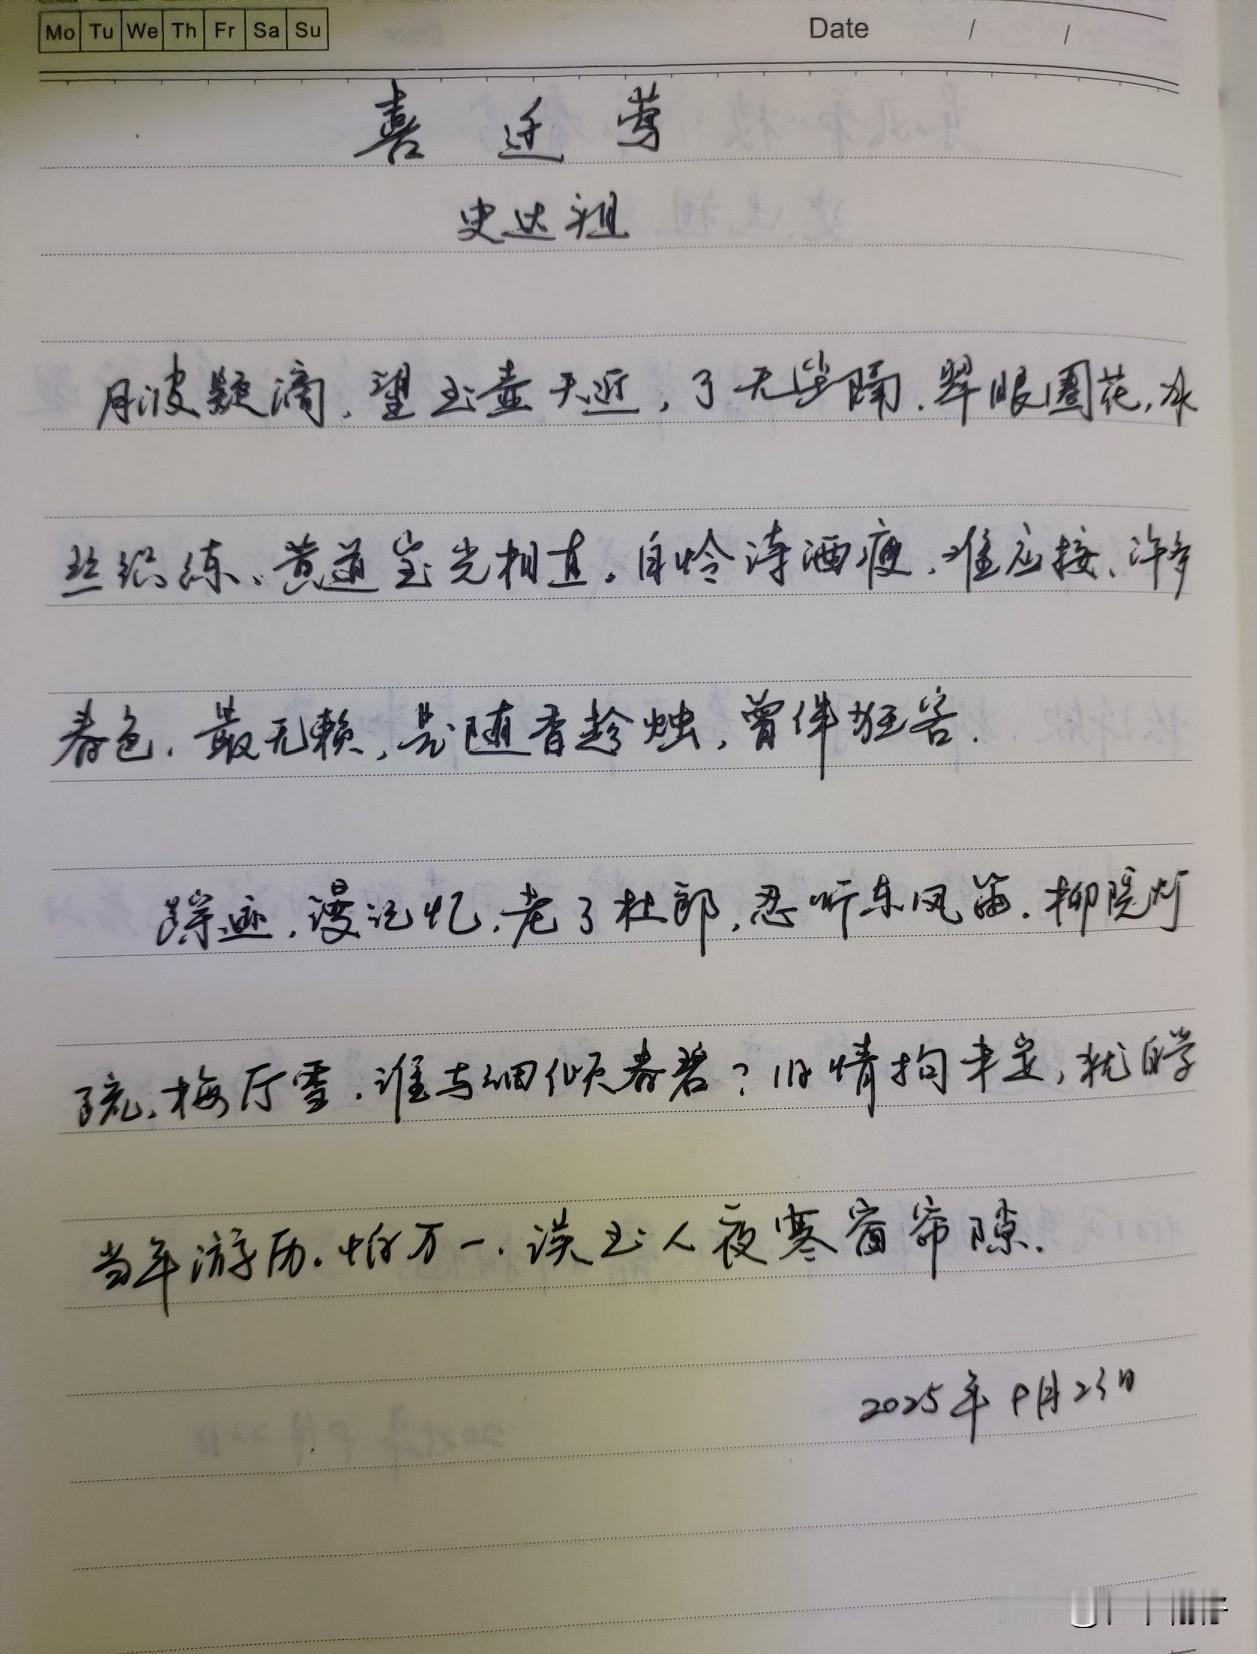 Mo Tu We Th Fr Sa Su Date / /
喜迁莺
史达祖
月波疑滴，望玉壶天近，了无尘隔，翠眼圈花，冰
丝织练，黄道宝光相直。自怜诗酒瘦，难应接，许多
春色，最无赖，是随香趁烛，曾伴狂客。
踪迹，漫记忆，老了杜郎，忍听东风笛，柳院灯
疏，梅厅雪，谁与细倾春碧？旧情拘未定，犹自学
当年游历。怕万一，误玉人夜寒窗帘隙。
2025年9月23日